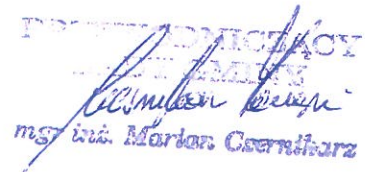 PRZEWODNICZĄCY
RADY GMINY
mgr inż. Marian Czerniharz